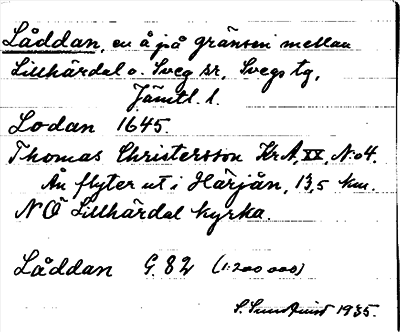 Låddan, en å på gränsen mellan
Lillhärdal o. Sveg sr, Svegs tg,
Jämtl. l.
Lodan 1645.
Thomas Christersson KrA, XX, No 4.
Ån flyter ut i Härjån, 13,5 km.
NÖ Lillhärdal kyrka.
Låddan G 82 (1:200 000)
S. Sundkvist 1935.